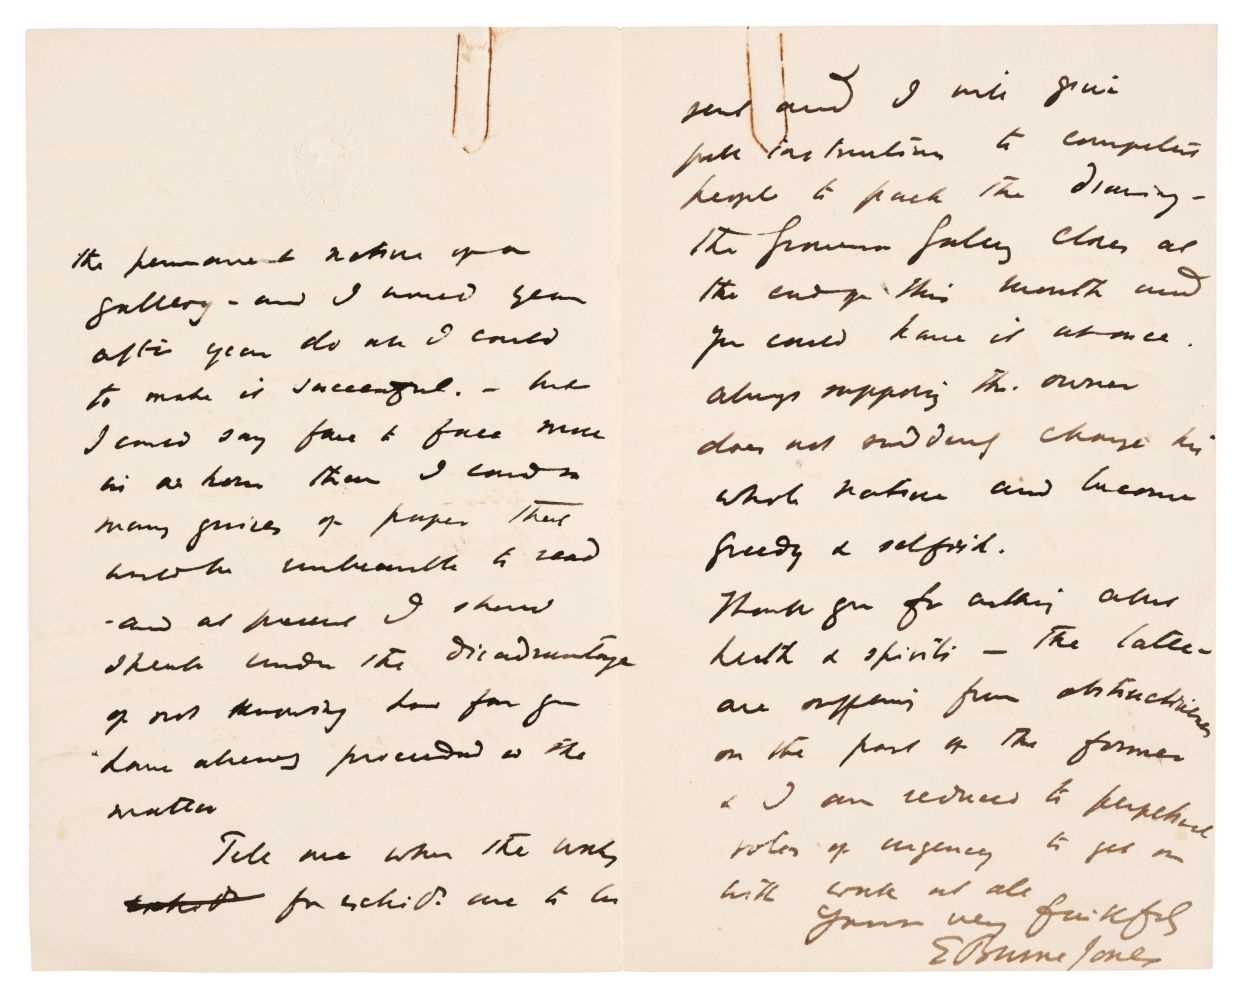 the permanent nature of a
gallery - and I would year
after year do all I could
to make it successful. - but
I could say face to face more
in an hour than I could in
many quires of paper that
would be unbearable to read
- and at present I should
speak under the disadvantage
of not knowing how far you
have already proceeded in the
matter
Tell me when the works
exhibn for exhibn. are to be
sent and I will give
full instructions to competent
people to pack the drawing -
the Grosvenor Gallery closes at
the end of this month and
you could have it at once.
always supposing the owner
does not suddenly change his
whole nature and become
greedy & selfish.
Thank you for asking about
health & spirits - the latter
are suffering from obstructiveness
on the part of the former
& I am reduced to perpetual
votes of urgency to get on
with work at all
Yours very faithfully
E Burne Jones